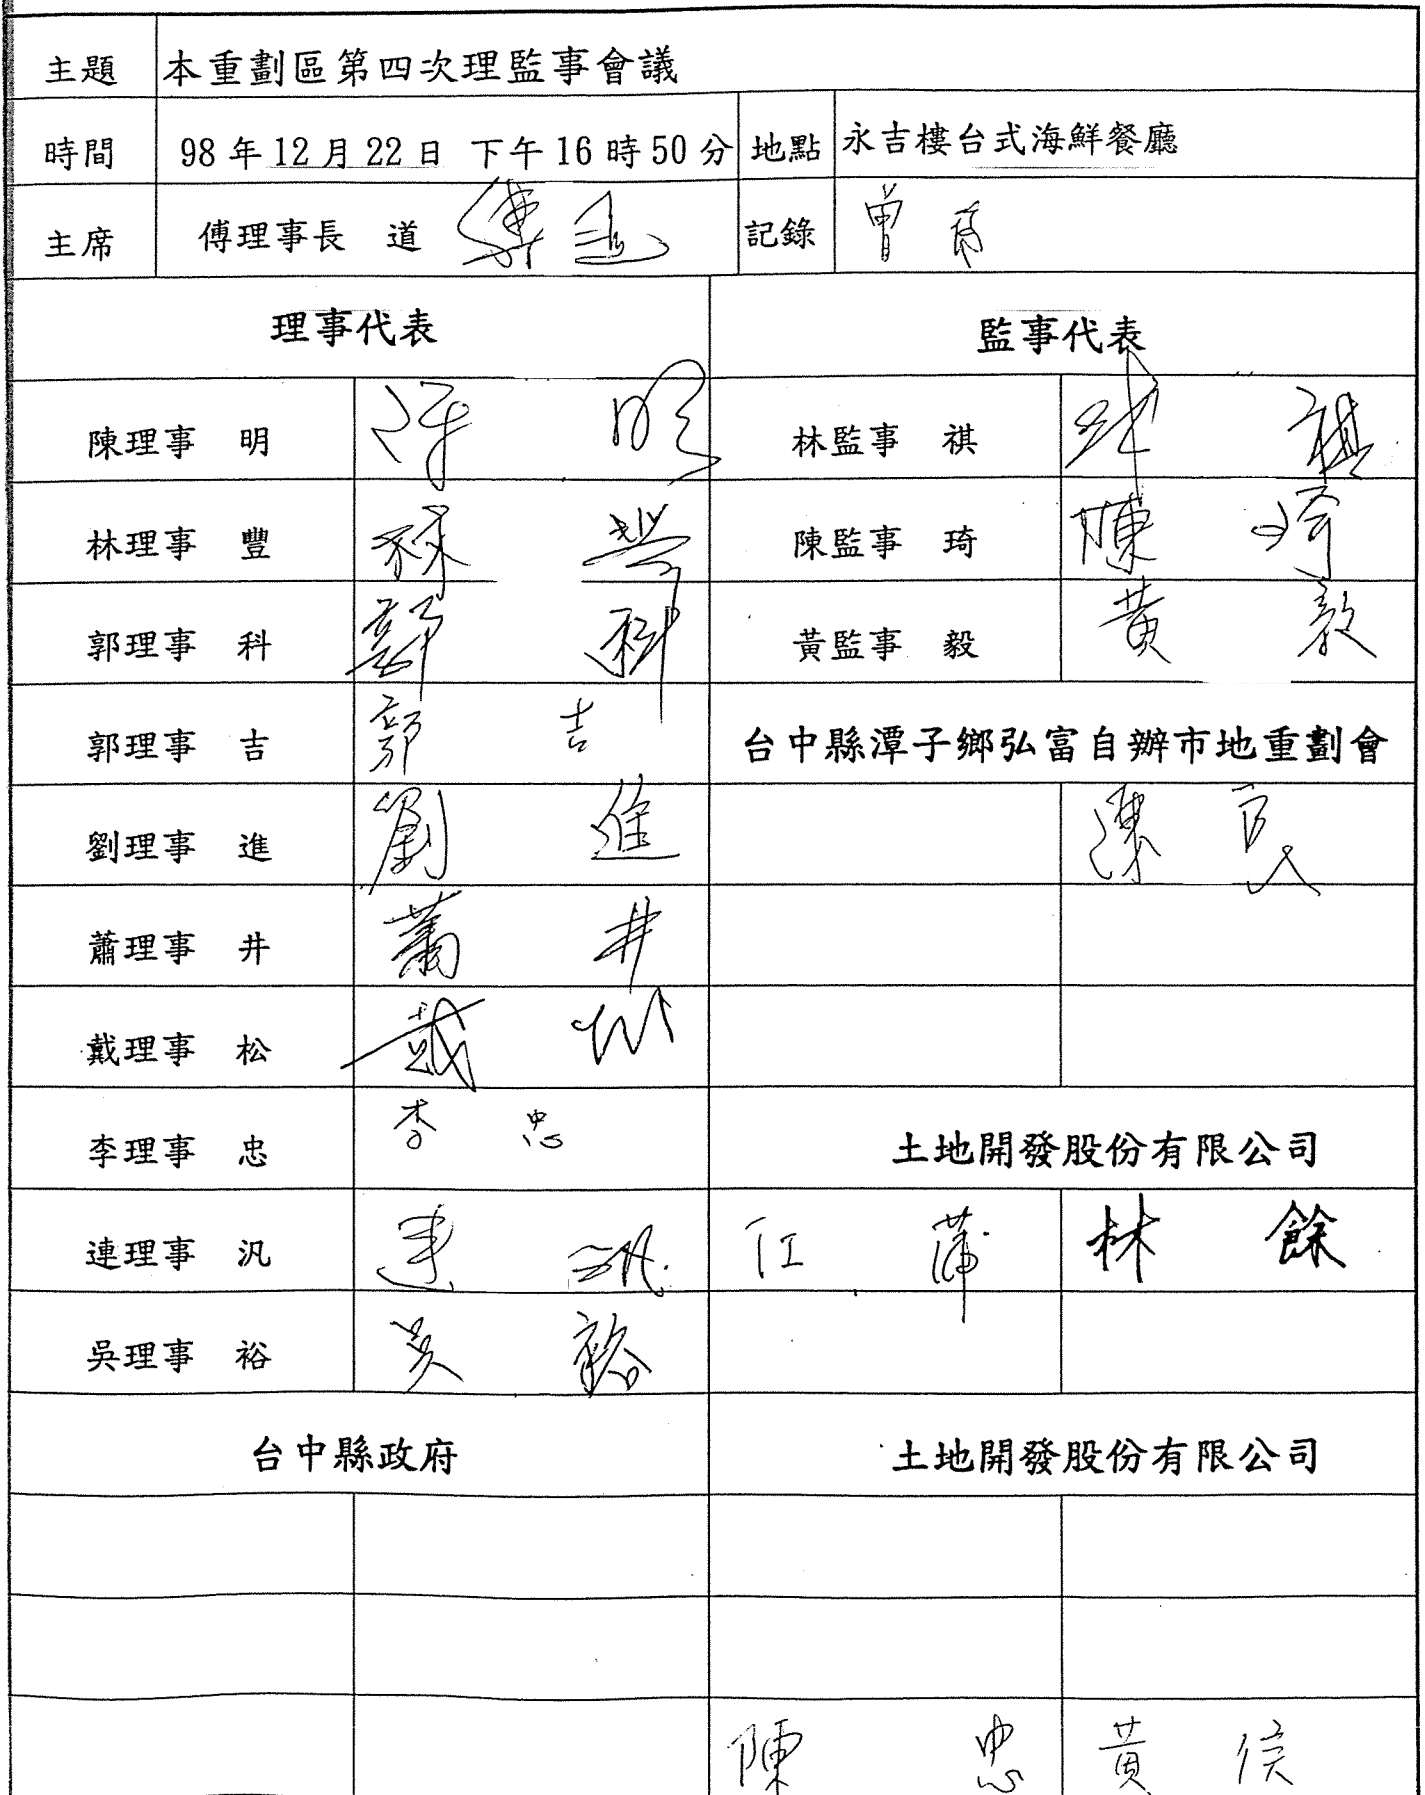 主題 本重劃區第四次理監事會議
時間 98年12月22日 下午16時50分 地點 永吉樓台式海鮮餐廳
主席 傅理事長 道 傅 道 記錄 曾
理事代表 監事代表
陳理事 明 陳 明 林監事 祺 林 祺
林理事 豐 林 豐 陳監事 琦 陳 琦
郭理事 科 郭 科 黃監事 毅 黃 毅
郭理事 吉 郭 吉 台中縣潭子鄉弘富自辦市地重劃會
劉理事 進 劉 進 陳 良
蕭理事 井 蕭 井
戴理事 松 戴 松
李理事 忠 李 忠 土地開發股份有限公司
連理事 汎 連 汎 江 蒲 林 餘
吳理事 裕 吳 裕
台中縣政府 土地開發股份有限公司
陳 忠 黃